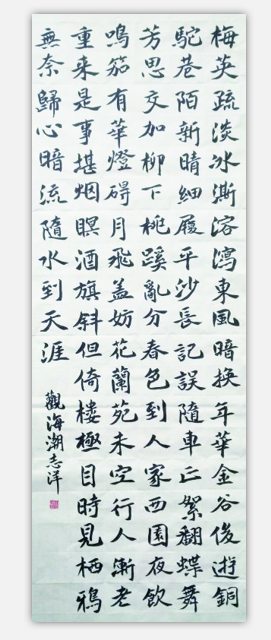 梅英疏淡冰澌溶瀉東風暗换年華金谷俊遊銅
駝巷陌新晴細履平沙長記誤隨車正絮翻蝶舞
芳思交加柳下桃蹊亂分春色到人家西園夜飲
鳴笳有華燈碍月飛盖妨花蘭苑未空行人漸老
重来是事堪烟瞑酒旗斜但倚樓極目時見栖鴉
無奈歸心暗流隨水到天涯
觀海潮志洋